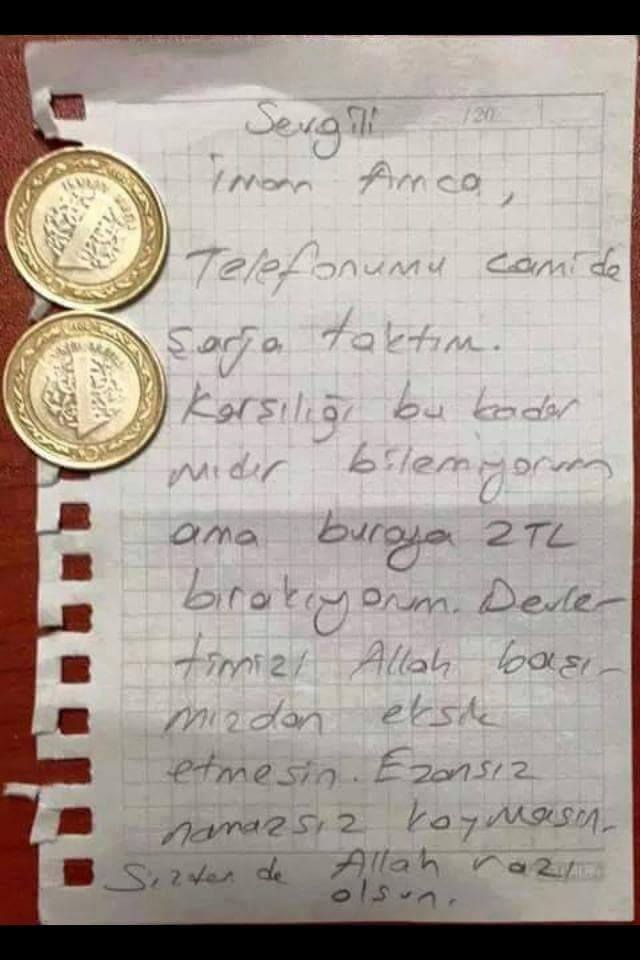 /20
Sevgili
İmam Amca,
Telefonumu camide
şarja taktım.
Karşılığı bu kadar
mıdır bilemiyorum
ama buraya 2TL
bırakıyorum. Devle-
timizi Allah başı-
mızdan eksik
etmesin. Ezansız
namazsız koymasın.
Sizden de Allah razı
olsun.